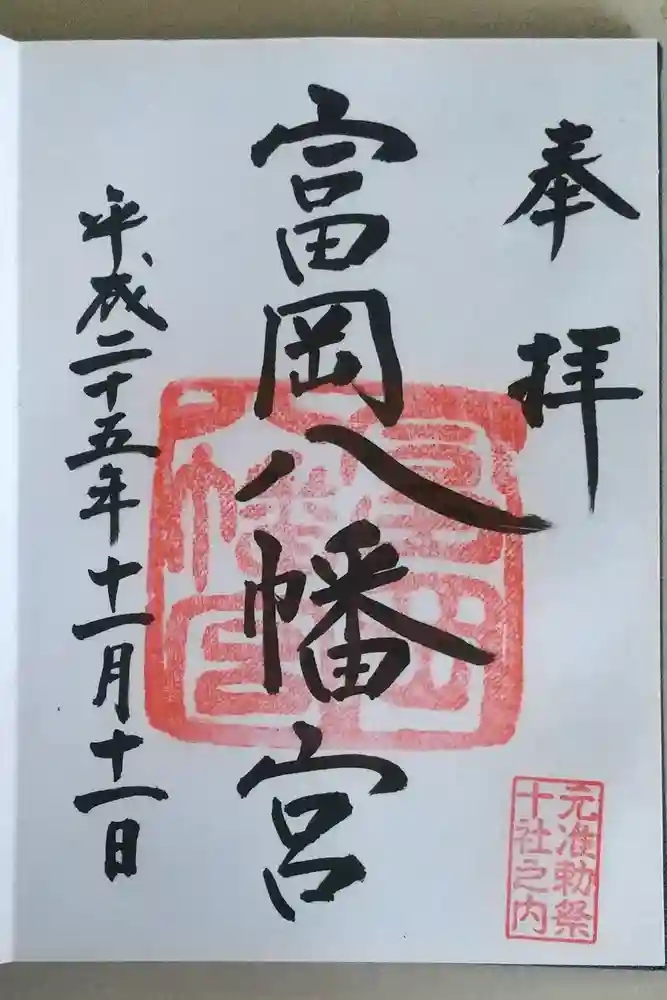 奉拝
富岡八幡宮
平成二十五年十一月十一日
富岡八幡宮
元准勅祭
十社之内